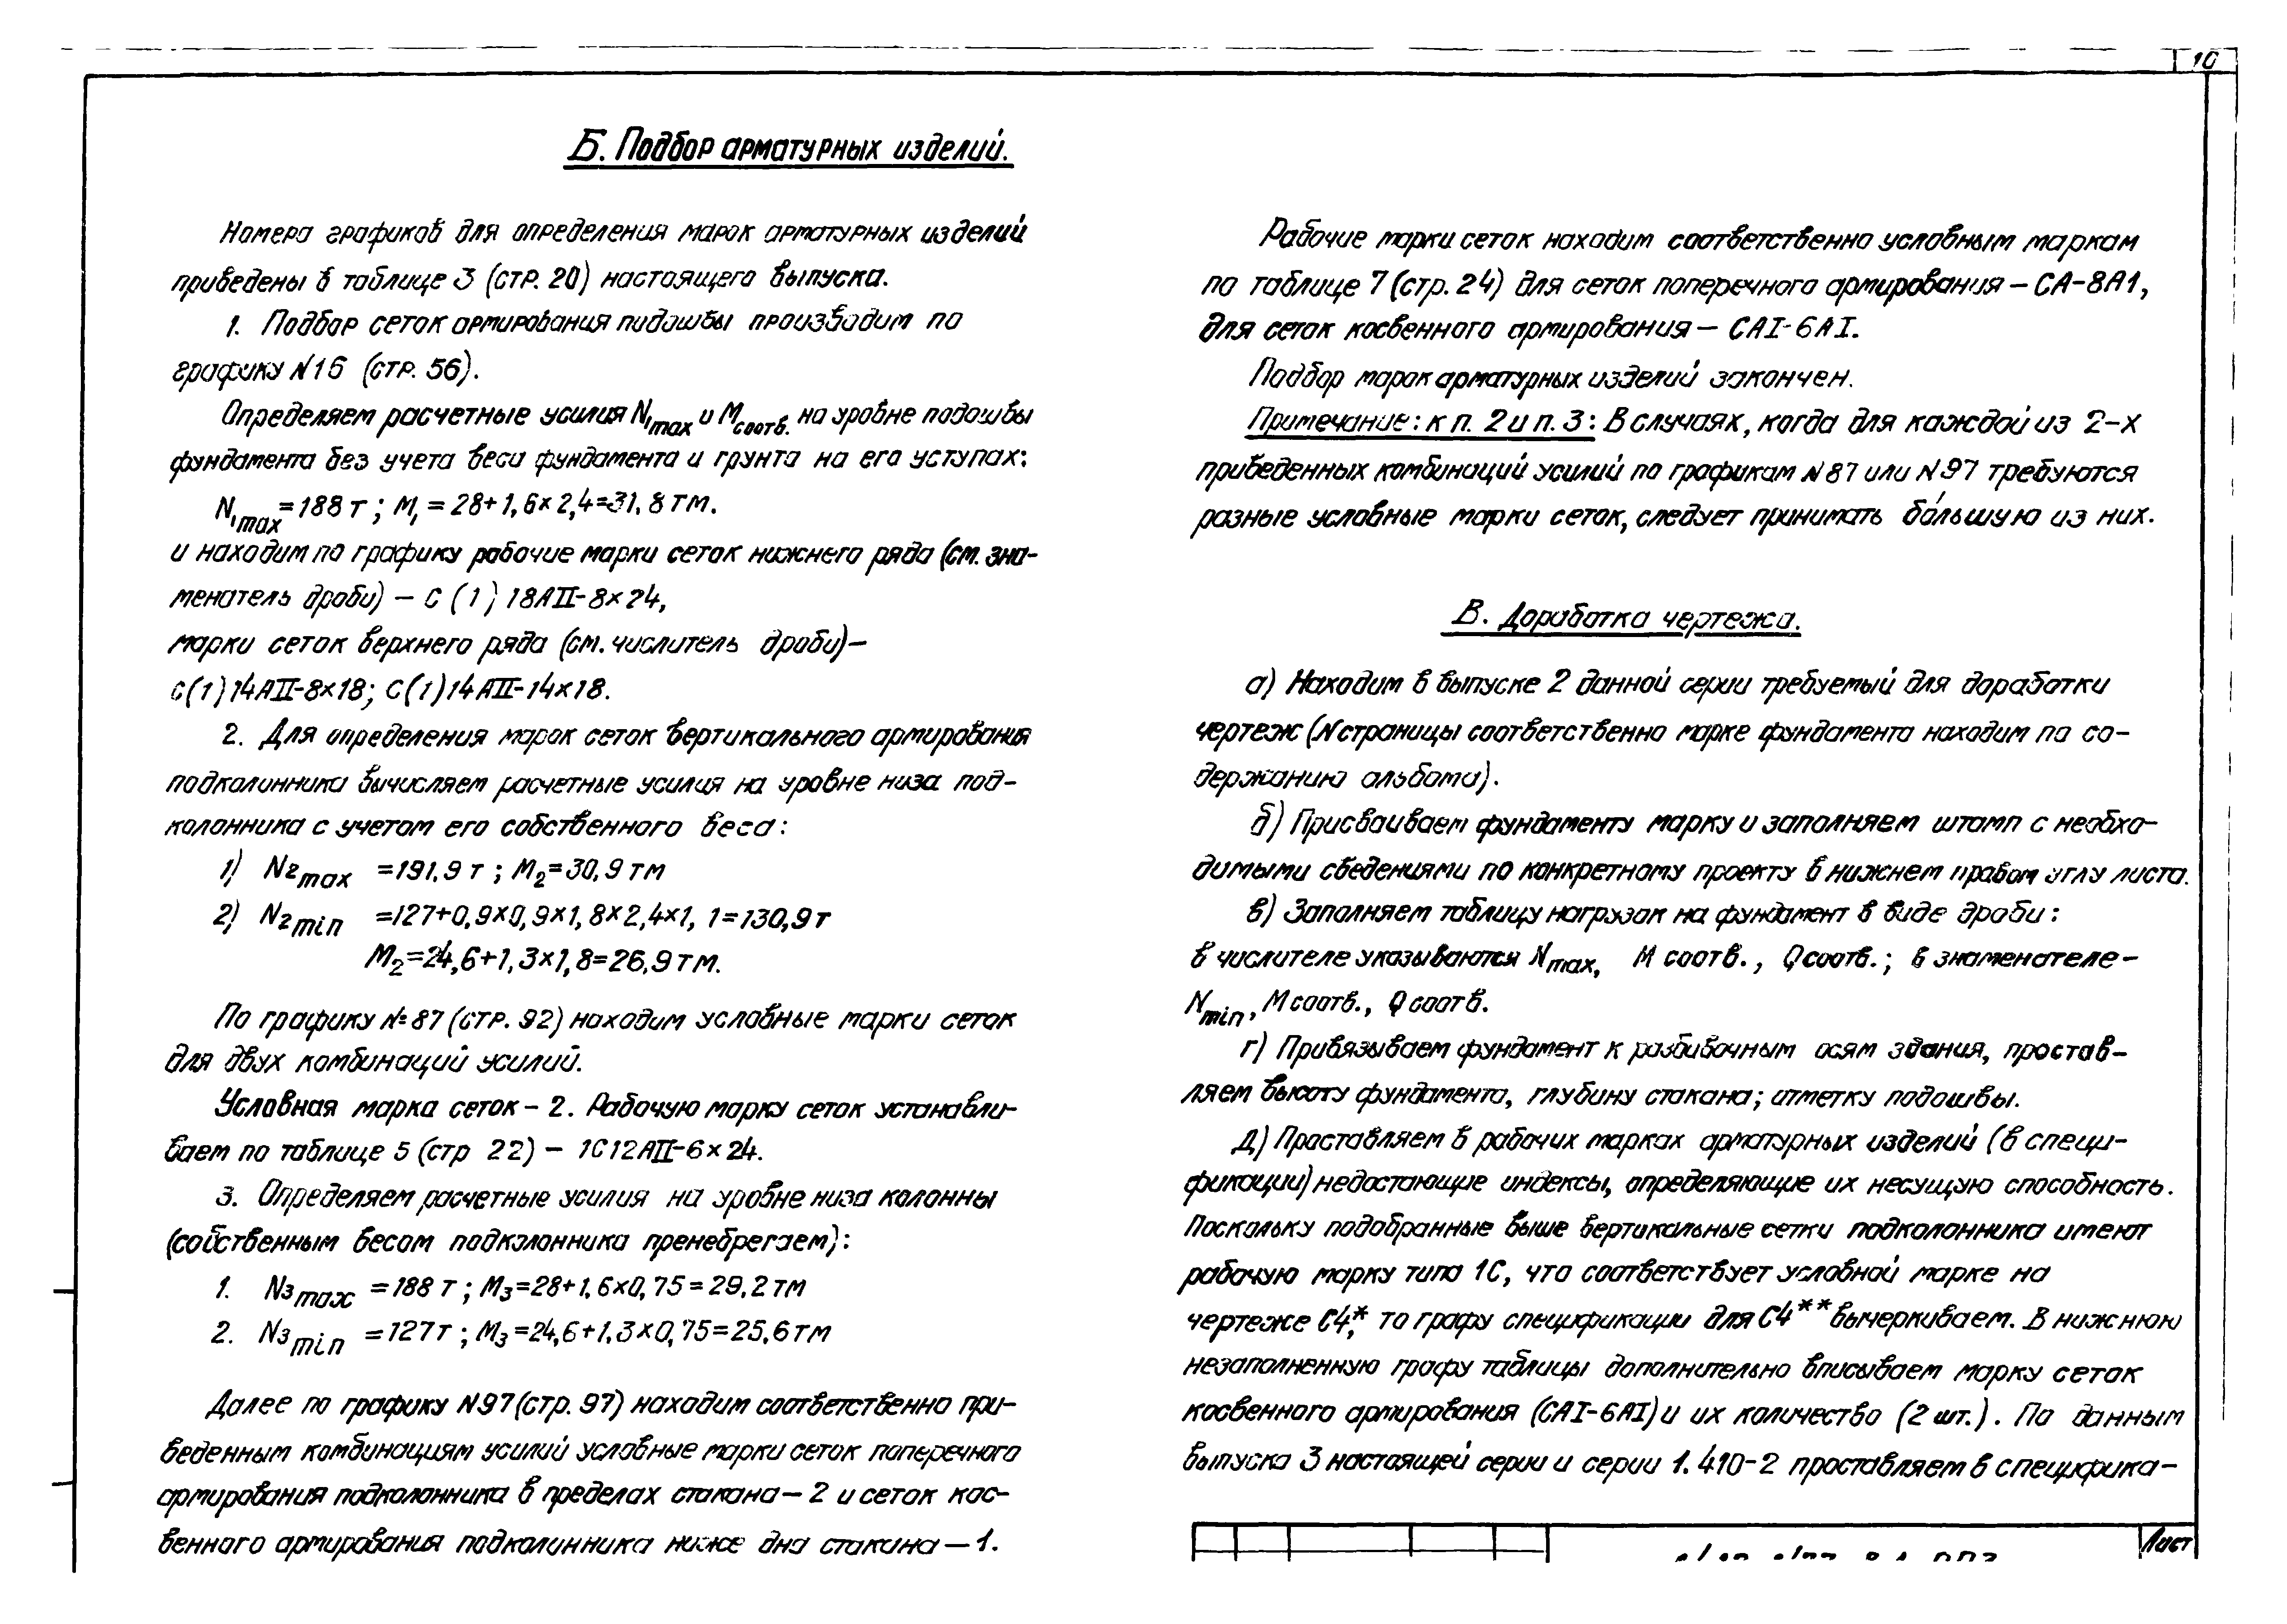 10
Б. Подбор арматурных изделий.
Номера графиков для определения марок арматурных изделий
приведены в таблице 3 (стр. 20) настоящего выпуска.
1. Подбор сеток армирования подошвы производим по
графику N16 (стр. 56).
Определяем расчетные усилия N₁max и Mсоотв. на уровне подошвы
фундамента без учета веса фундамента и грунта на его уступах:
N₁max=188т; M₁=28+1,6×2,4=31,8тм.
и находим по графику рабочие марки сеток нижнего ряда (см. зна-
менатель дроби) – С (1) 18АII-8×24,
марки сеток верхнего ряда (см. числитель дроби)–
С(1)14АII-8×18; С(1)14АII-14×18.
2. Для определения марок сеток вертикального армирования
подколонника вычисляем расчетные усилия на уровне низа под-
колонника с учетом его собственного веса:
1) N2max =191,9т; M2=30,9тм
2) N2min =127+0,9×0,9×1,8×2,4×1,1=130,9т
M2=24,6+1,3×1,8=26,9тм.
По графику №87 (стр. 92) находим условные марки сеток
для двух комбинаций усилий.
Условная марка сеток – 2. Рабочую марку сеток устанавли-
ваем по таблице 5 (стр 22) – 1С12АII-6×24.
3. Определяем расчетные усилия на уровне низа колонны
(собственным весом подколонника пренебрегаем):
1. N3max =188т; M3=28+1,6×0,75=29,2тм
2. N3min =127т; M3=24,6+1,3×0,75=25,6тм
Далее по графику N97(стр. 97) находим соответственно при-
веденным комбинациям усилий условные марки сеток поперечного
армирования подколонника в пределах стакана – 2 и сеток кос-
венного армирования подколонника ниже дна стакана – 1.
Рабочие марки сеток находим соответственно условным маркам
по таблице 7 (стр. 24) для сеток поперечного армирования – СА-8А1,
для сеток косвенного армирования – САI-6АI.
Подбор марок арматурных изделий закончен.
Примечание: к п. 2 и п. 3: В случаях, когда для каждой из 2-х
приведенных комбинаций усилий по графикам N87 или N97 требуются
разные условные марки сеток, следует принимать бо́льшую из них.
В. Доработка чертежа.
а) Находим в выпуске 2 данной серии требуемый для доработки
чертеж (N страницы соответственно марке фундамента находим по со-
держанию альбома).
б) Присваиваем фундаменту марку и заполняем штамп с необхо-
димыми сведениями по конкретному проекту в нижнем правом углу листа.
в) Заполняем таблицу нагрузок на фундамент в виде дроби:
в числителе указываются Nmax, M соотв., Q соотв.; в знаменателе –
Nmin, M соотв., Q соотв.
г) Привязываем фундамент к разбивочным осям здания, простав-
ляем высоту фундамента, глубину стакана; отметку подошвы.
д) Проставляем в рабочих марках арматурных изделий (в специ-
фикации) недостающие индексы, определяющие их несущую способность.
Поскольку подобранные выше вертикальные сетки подколонника имеют
рабочую марку типа 1С, что соответствует условной марке на
чертеже С4*, то графу спецификации для С4** вычеркиваем. В нижнюю
незаполненную графу таблицы дополнительно вписываем марку сеток
косвенного армирования (САI-6АI) и их количество (2 шт.). По данным
выпуска 3 настоящей серии и серии 1.410-2 проставляем в специфика-
Лист